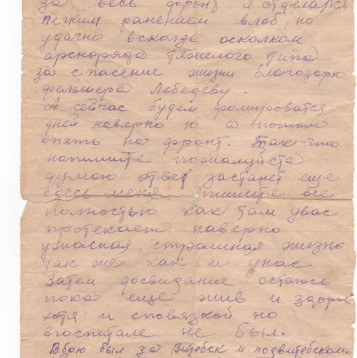 за весь фронт я отделался
легким ранением в лоб, но
удачно вскользь осколком
арснаряда тяжелого типа
за спасение жизни благодарю
фельшера Лебедеву.
А сейчас будем формироватся
дней наверно 10 а потом
опять на фронт. Так-что
напишите пожалуйста
думою ответ застанет еще
здесь меня. Пишите все
полностью как там увас
протекает наверно
ужасная, страшная жизнь
так же как и унас
Затем досвидание остаюсь
пока еще жив и здоров
хотя и сповязкой но
вгоспитале не был.
Вбою был за Витебск и подвитебском